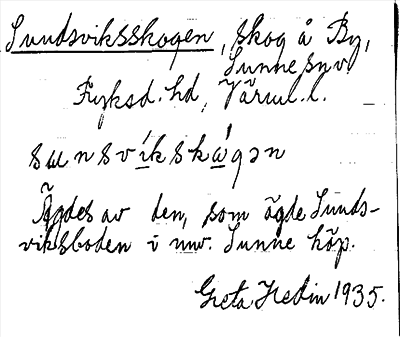 Sundsviksskogen, skog å By,
Sunne snv.
Fryksd. hd, Värml. l.
sunsvíkskǫ́gən
Ägdes av den, som ägde Sunds-
viksboden i nuv. Sunne köp.
Greta Hedin 1935.